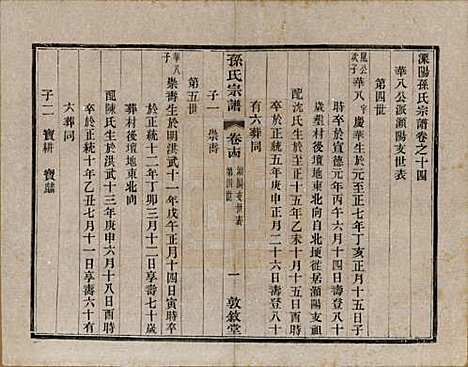 溧陽孫氏宗譜卷之十四
華八公派瀨陽支世表
第四世
勝公次子
華八 字慶華生於元至正七年丁亥正月十五日
時卒於宣德元年丙午六月十四日壽登八十
歲葬村後墳地東北向自北埂徙居瀨陽支祖
配沈氏生於至正十五年乙未十月十五日酉時
卒於正統五年庚申正月二十六日壽登八十
有六葬同
子一 崇壽
孫氏宗譜 卷十四 瀨陽支世表 第四世 一 敦敘堂
第五世
華八子
崇壽生於明洪武十一年戊午正月十四日寅時卒
於正統十二年丁卯三月十二日享壽七十歲
葬村後墳地東北向
配陳氏生於洪武十三年庚申六月十八日酉時
卒於正統十年乙丑七月十一日享壽六十有
六葬同
子二 寶耕 寶